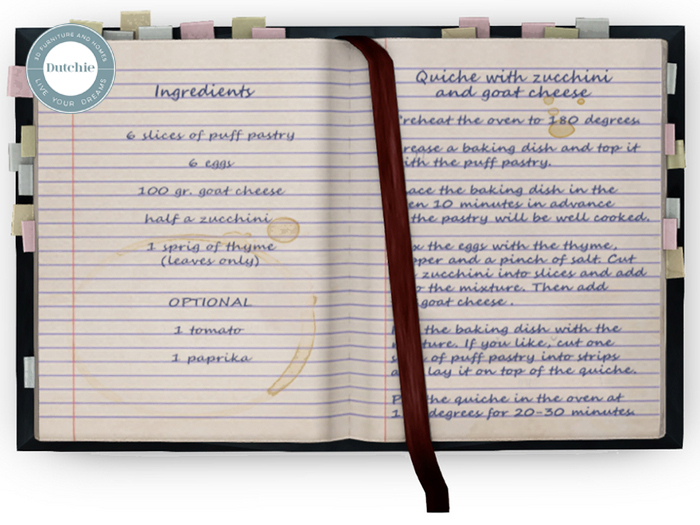 3D FURNITURE AND HOMES
Dutchie
LIVE YOUR DREAMS
Ingredients
6 slices of puff pastry
6 eggs
100 gr. goat cheese
half a zucchini
1 sprig of thyme
(leaves only)
OPTIONAL
1 tomato
1 paprika
Quiche with zucchini
and goat cheese
reheat the oven to 180 degrees.
rease a baking dish and top it
ith the puff pastry.
ace the baking dish in the
en 10 minutes in advance
the pastry will be well cooked.
x the eggs with the thyme,
pper and a pinch of salt. Cut
zucchini into slices and add
o the mixture. Then add
goat cheese .
the baking dish with the
ture. If you like, cut one
of puff pastry into strips
lay it on top of the quiche.
the quiche in the oven at
degrees for 20-30 minutes.